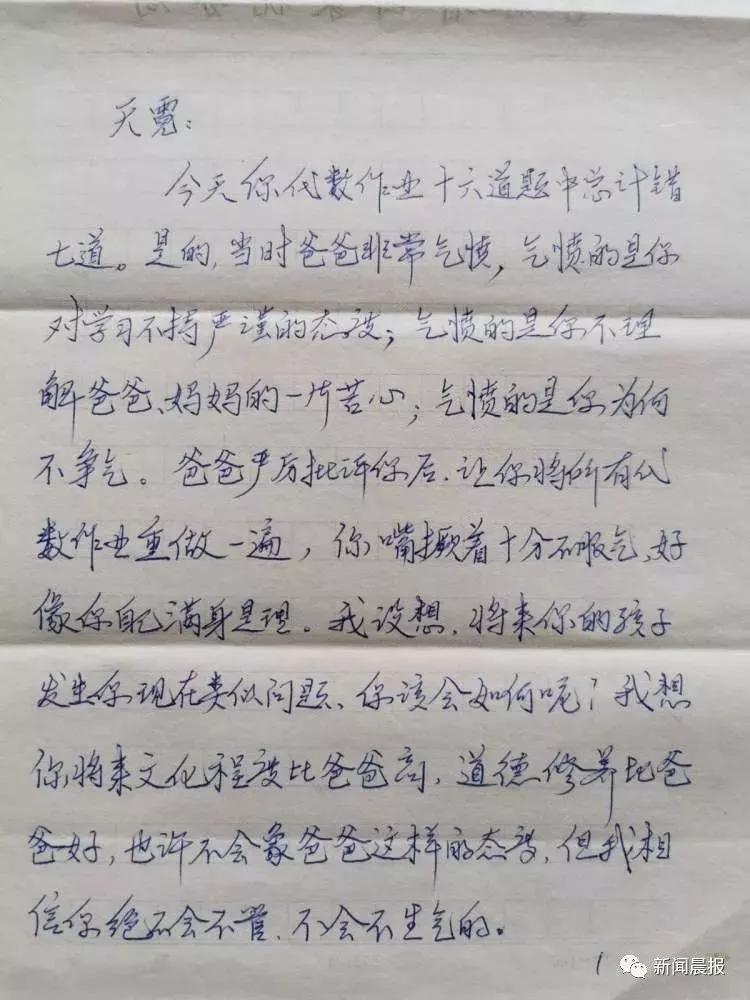 天霓:
今天你代数作业十六道题中总计错
七道。是的,当时爸爸非常气愤,气愤的是你
对学习不持严谨的态度;气愤的是你不理
解爸爸、妈妈的一片苦心;气愤的是你为何
不争气。爸爸严厉批评你后,让你将所有代
数作业重做一遍,你嘴撅着十分不服气,好
像你自己满身是理。我设想,将来你的孩子
发生你现在类似问题、你该会如何呢?我想
你将来文化程度比爸爸高,道德修养比爸
爸好,也许不会象爸爸这样的态度,但我相
信你绝不会不管、不会不生气的。
1
新闻晨报